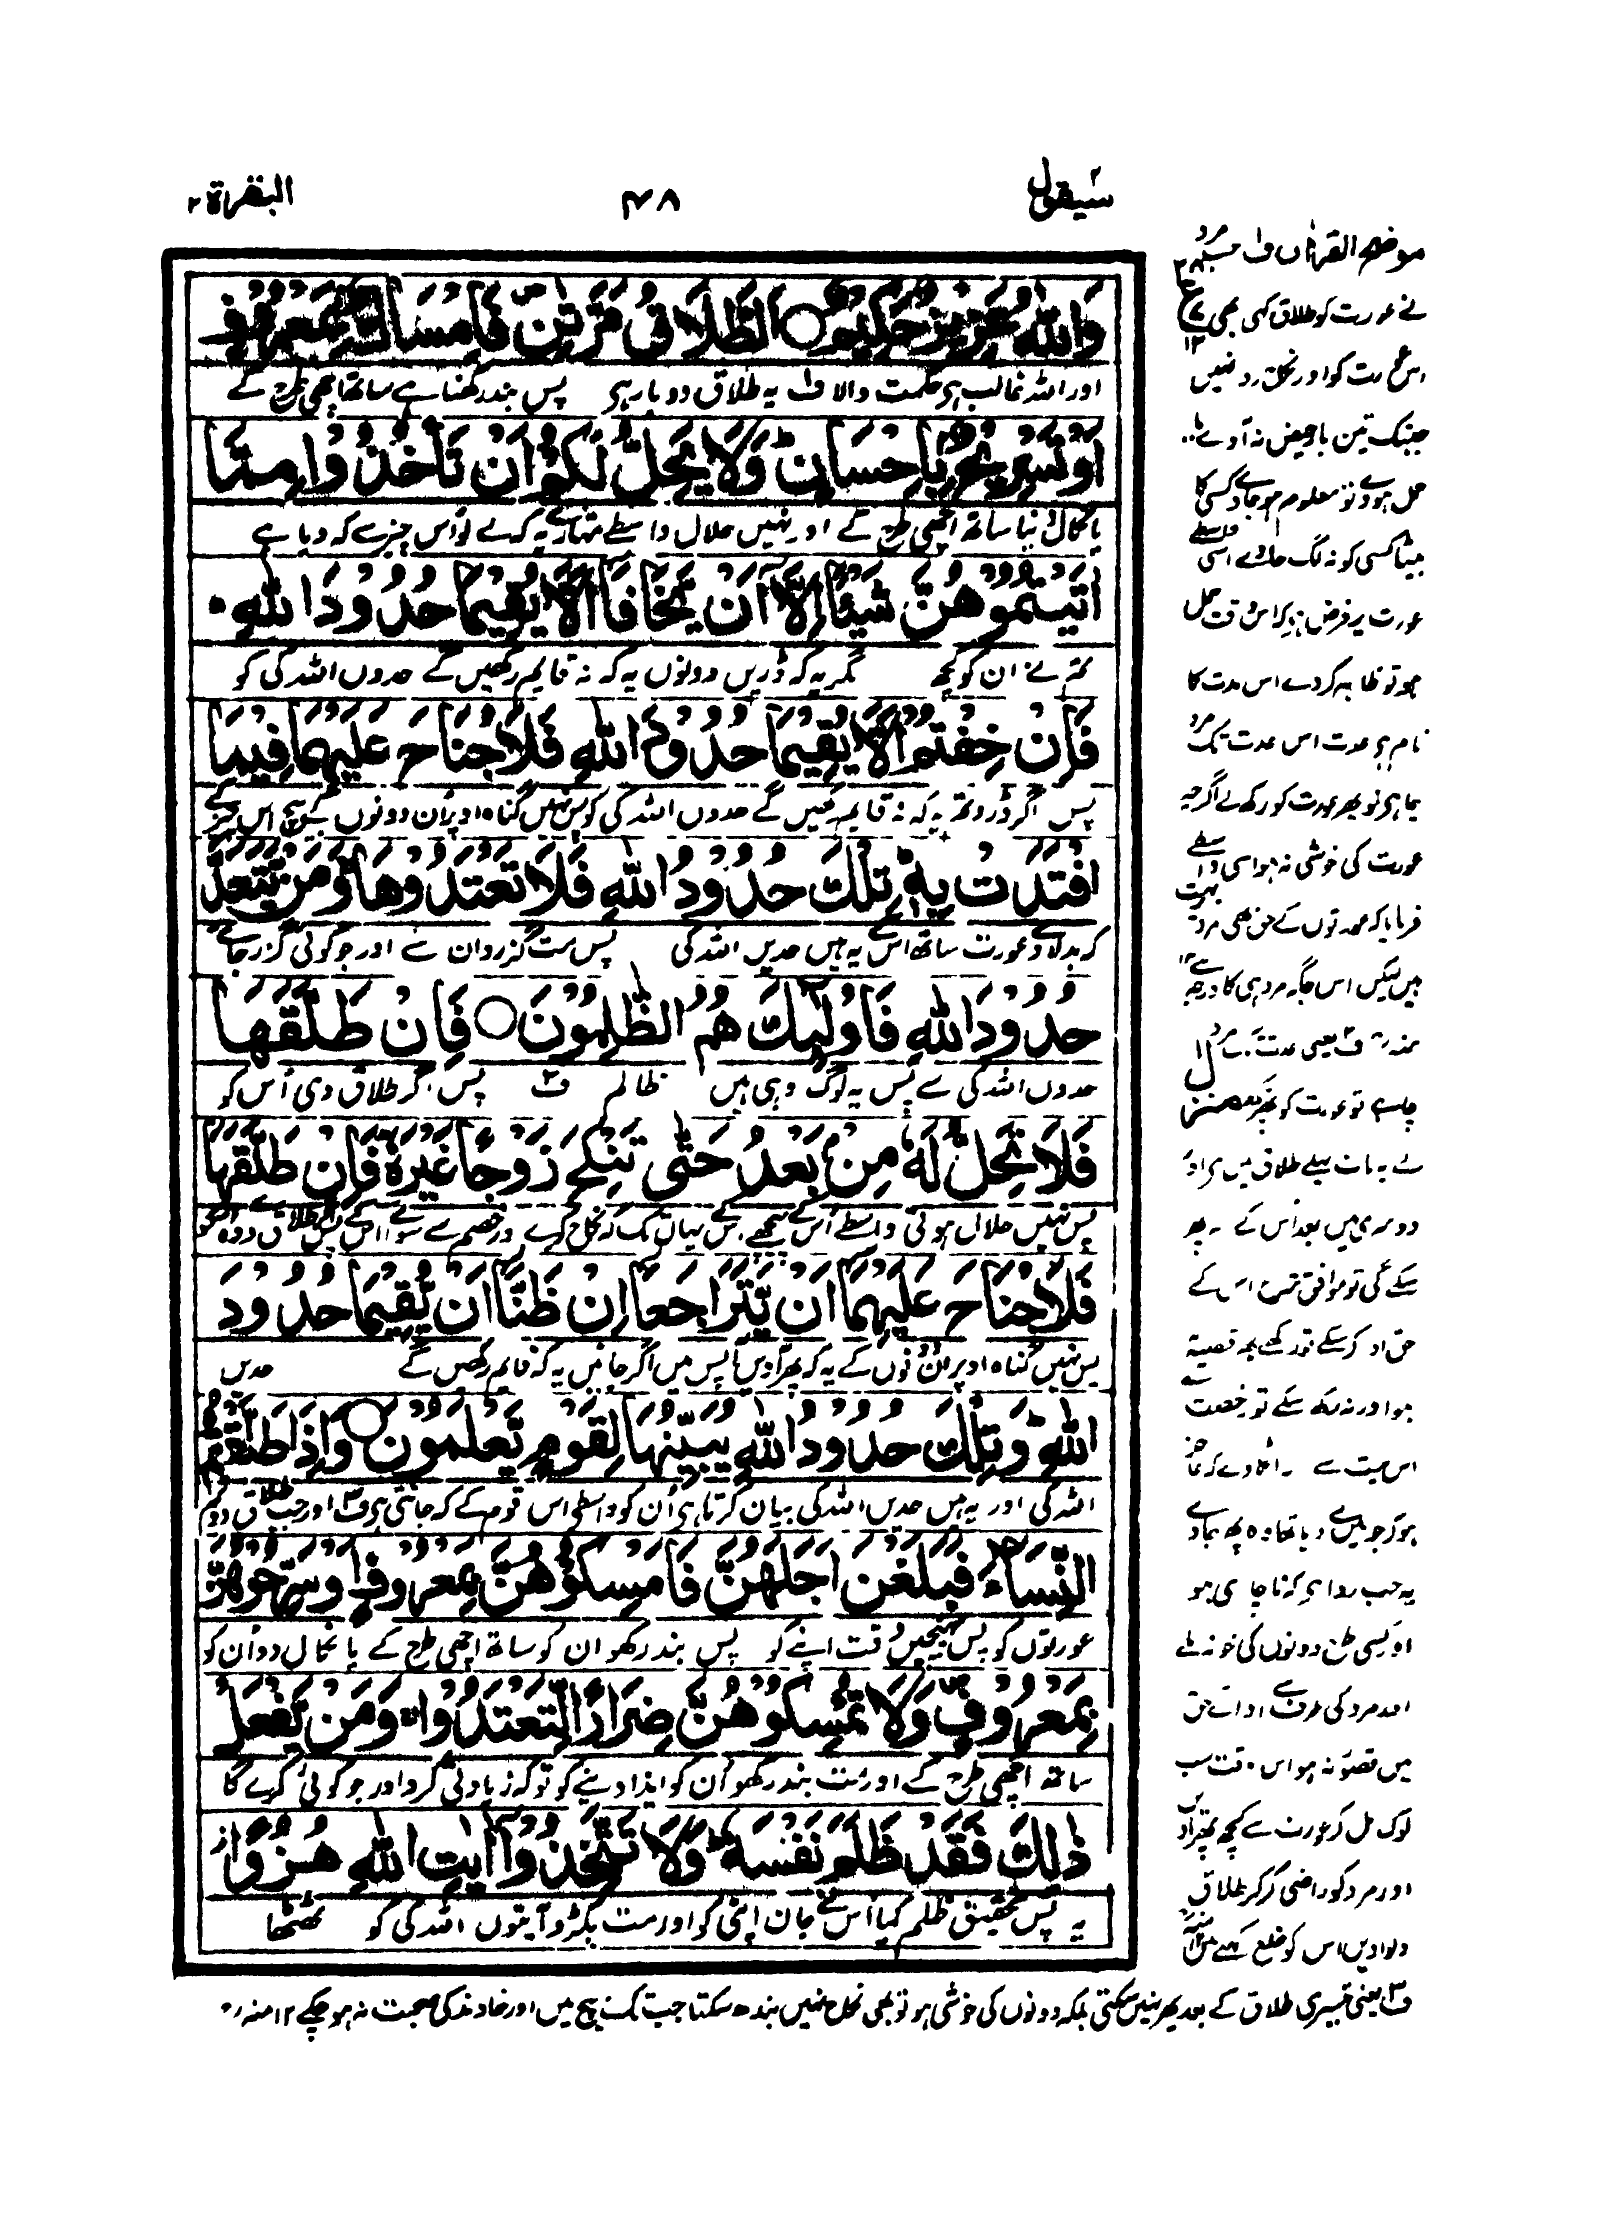 سَيَقُول ٢
٤٨
البقرة ٢
وَاللّٰهُ عَزِيْزٌ حَكِيْمٌ ○ اَلطَّلَاقُ مَرَّتٰنِ فَاِمْسَاكٌ بِمَعْرُوْفٍ
اور اللہ غالب ہے حکمت والا ف یہ طلاق دو بار ہے پس بند رکھنا ہے ساتھ اچھی طرح کے
اَوْ تَسْرِيْحٌ بِاِحْسَانٍ ط وَلَا يَحِلُّ لَكُمْ اَنْ تَاْخُذُوْا مِمَّا
یا نکال دینا ساتھ اچھی طرح کے اور نہیں حلال واسطے تمہارے یہ کہ لے لو اس چیز سے کہ دیا ہے
اٰتَيْتُمُوْهُنَّ شَيْئًا اِلَّا اَنْ يَّخَافَا اَلَّا يُقِيْمَا حُدُوْدَ اللّٰهِ
تم نے ان کو کچھ مگر یہ کہ ڈریں دونوں یہ کہ نہ قایم رکھیں گے حدوں اللہ کی کو
فَاِنْ خِفْتُمْ اَلَّا يُقِيْمَا حُدُوْدَ اللّٰهِ فَلَا جُنَاحَ عَلَيْهِمَا فِيْمَا
پس اگر ڈرو تم یہ کہ نہ قایم رکھیں گے حدوں اللہ کی کو پس نہیں گناہ اوپر ان دونوں کے بیچ اس چیز کے
افْتَدَتْ بِهٖ ط تِلْكَ حُدُوْدُ اللّٰهِ فَلَا تَعْتَدُوْهَا وَمَنْ يَّتَعَدَّ
کہ بدلا دے عورت ساتھ اس کے یہ ہیں حدیں اللہ کی پس مت گزرو ان سے اور جو کوئی گزر جاے
حُدُوْدَ اللّٰهِ فَاُولٰٓئِكَ هُمُ الظّٰلِمُوْنَ ○ فَاِنْ طَلَّقَهَا
حدوں اللہ کی سے پس یہ لوگ وہی ہیں ظالم ف پس اگر طلاق دی اُس کو
فَلَا تَحِلُّ لَهٗ مِنْ بَعْدُ حَتّٰى تَنْكِحَ زَوْجًا غَيْرَهٗ فَاِنْ طَلَّقَهَا
پس نہیں حلال ہوتی واسطے اُس کے پیچھے اس کے یہاں تک کہ نکاح کرے اور خصم سے سوا اس کے پس اگر طلاق دے وہ اس کو
فَلَا جُنَاحَ عَلَيْهِمَا اَنْ يَّتَرَاجَعَا اِنْ ظَنَّا اَنْ يُّقِيْمَا حُدُوْدَ
پس نہیں گناہ اوپر ان دونوں کے یہ کہ پھر آویں آپس میں اگر جانیں یہ کہ قایم رکھیں گے حدیں
اللّٰهِ ط وَتِلْكَ حُدُوْدُ اللّٰهِ يُبَيِّنُهَا لِقَوْمٍ يَّعْلَمُوْنَ ○ وَاِذَا طَلَّقْتُمُ
اللہ کی اور یہ ہیں حدیں اللہ کی بیان کرتا ہے اُن کو واسطے اس قوم کے کہ جانتی ہے ف اور جب طلاق دو تم
النِّسَآءَ فَبَلَغْنَ اَجَلَهُنَّ فَاَمْسِكُوْهُنَّ بِمَعْرُوْفٍ اَوْ سَرِّحُوْهُنَّ
عورتوں کو پس پہنچیں وقت اپنے کو پس بند رکھو ان کو ساتھ اچھی طرح کے یا نکال دو ان کو
بِمَعْرُوْفٍ ص وَلَا تُمْسِكُوْهُنَّ ضِرَارًا لِّتَعْتَدُوْا وَمَنْ يَّفْعَلْ
ساتھ اچھی طرح کے اور مت بند رکھو اُن کو ایذا دینے کو تو کہ زیادتی کرو اور جو کوئی کرے گا
ذٰلِكَ فَقَدْ ظَلَمَ نَفْسَهٗ ط وَلَا تَتَّخِذُوْٓا اٰيٰتِ اللّٰهِ هُزُوًا
یہ پس تحقیق ظلم کیا اُس نے جان اپنی کو اور مت پکڑو آیتوں اللہ کی کو ٹھٹھا
موضح القرآن ف مرد
نے عورت کو طلاق کہی ابھی
اس عورت کو اور نکاح روا نہیں
جب تک تین بار حیض نہ آوے
حمل ہووے تو معلوم ہو جاوے کسی کا
بیٹا کسی کو نہ لگ جاوے اسی واسطے
عورت پر فرض ہے کہ اس وقت حمل
ہو تو ظاہر کر دے اس مدت کا
نام ہے عدت اس عدت تک مرد
چاہے تو پھر عورت کو رکھ لے اگرچہ
عورت کی خوشی نہ ہو اسی واسطے
فرمایا کہ عورتوں کے حق بھی مرد پر بہت
ہیں لیکن اس جگہ مرد ہی کا درجہ ہے
منہ ف یعی عدت مرد
چاہے تو عورت کو پھیر
یہ بات پہلے طلاق میں ہے اور
دوسری میں بعد اُس کے پھر
سکے گی تو موافق اس کے
حق ادا کر سکے تو رکھے
ہو اور نہ رکھ سکے تو رخصت
یہ جب روا ہے کہ ناچاری ہو
دونوں کی خو نہ ملے
اور مرد کی طرف سے اداے حق
میں قصور نہ ہو اس وقت سب
لوگ مل کر عورت سے کچھ
اور مرد کو راضی کر کر طلاق
دلوا دیں اس کو خلع کہتے ہیں
ف یعنی تیسری طلاق کے بعد پھر نہیں سکتی بلکہ دونوں کی خوشی ہو تو بھی نکاح نہیں بندھ سکتا جب تک بیچ میں اور خاوند کی صحبت نہ ہو چکے ١٢ منہ رح